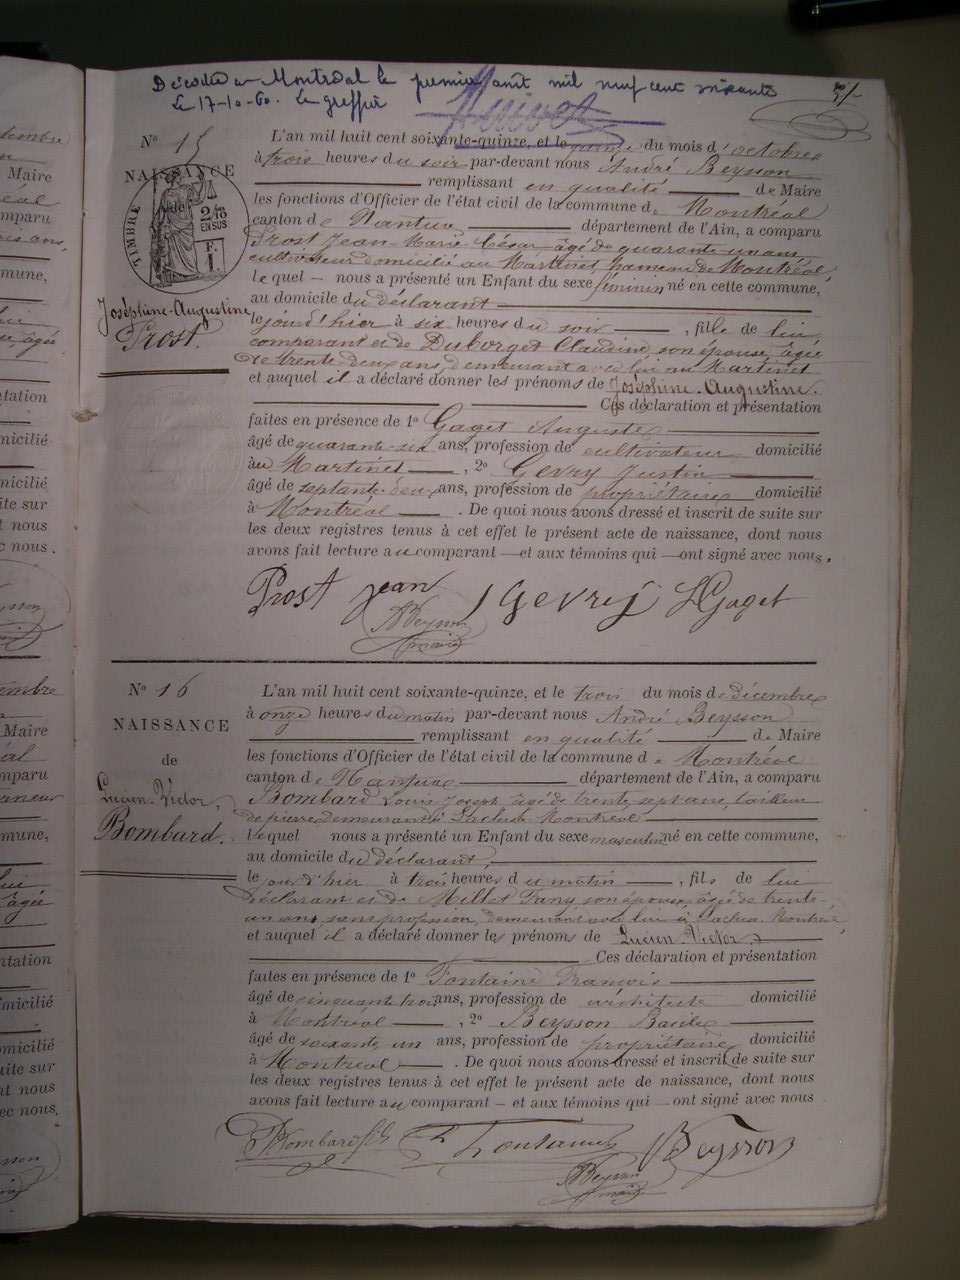 Décédée à Montréal le premier août mil neuf cent soixante
le 17-10-60. Le greffier
Nº 15
NAISSANCE
TIMBRE
2/10
EN SUS
F.
Joséphine-Augustine
Prost.
L'an mil huit cent soixante-quinze, et le quinze du mois d'octobre
à trois heures du soir par-devant nous André Beysson
remplissant en qualité de Maire
les fonctions d'Officier de l'état civil de la commune de Montréal
canton de Nantua, département de l'Ain, a comparu
Prost Jean-Marie César âgé de quarante-un ans
cultivateur domicilié au Martinet, hameau de Montréal,
lequel nous a présenté un Enfant du sexe féminin né en cette commune,
au domicile du déclarant
le jourd'hier à six heures du soir, fille de lui
comparant et de Duborget Claudine, son épouse, âgée
de trente-deux ans, demeurant avec lui au Martinet
et auquel il a déclaré donner les prénoms de Joséphine-Augustine.
Ces déclaration et présentation
faites en présence de 1º Gaget Auguste
âgé de quarante-six ans, profession de cultivateur domicilié
au Martinet, 2º Gevry Justin
âgé de septante-deux ans, profession de propriétaire domicilié
à Montréal. De quoi nous avons dressé et inscrit de suite sur
les deux registres tenus à cet effet le présent acte de naissance, dont nous
avons fait lecture au comparant — et aux témoins qui — ont signé avec nous.
Prost Jean J Gevrey Gaget
ABeysson
maire
Nº 16
NAISSANCE
de
Lucien-Victor,
Bombard.
L'an mil huit cent soixante-quinze, et le trois du mois de décembre
à onze heures du matin par-devant nous André Beysson
remplissant en qualité de Maire
les fonctions d'Officier de l'état civil de la commune de Montréal
canton de Nantua département de l'Ain, a comparu
Bombard Louis Joseph âgé de trente sept ans, tailleur
de pierre demeurant à Montréal
lequel nous a présenté un Enfant du sexe masculin né en cette commune,
au domicile du déclarant,
le jour d'hier à trois heures du matin, fils de lui
déclarant et de Millet Fany son épouse, âgée de trente-
un ans, sans profession, demeurant avec lui à Montréal
et auquel il a déclaré donner les prénoms de Lucien-Victor
Ces déclaration et présentation
faites en présence de 1º Fontaine François
âgé de cinquante trois ans, profession de architecte domicilié
à Montréal, 2º Beysson Basile
âgé de soixante un ans, profession de propriétaire domicilié
à Montréal. De quoi nous avons dressé et inscrit de suite sur
les deux registres tenus à cet effet le présent acte de naissance, dont nous
avons fait lecture au comparant — et aux témoins qui — ont signé avec nous
Bombard Fontaine Beysson
ABeysson
maire